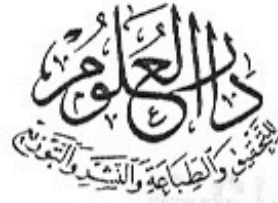 دار العلوم
للتحقيق والطباعة والنشر والتوزيع